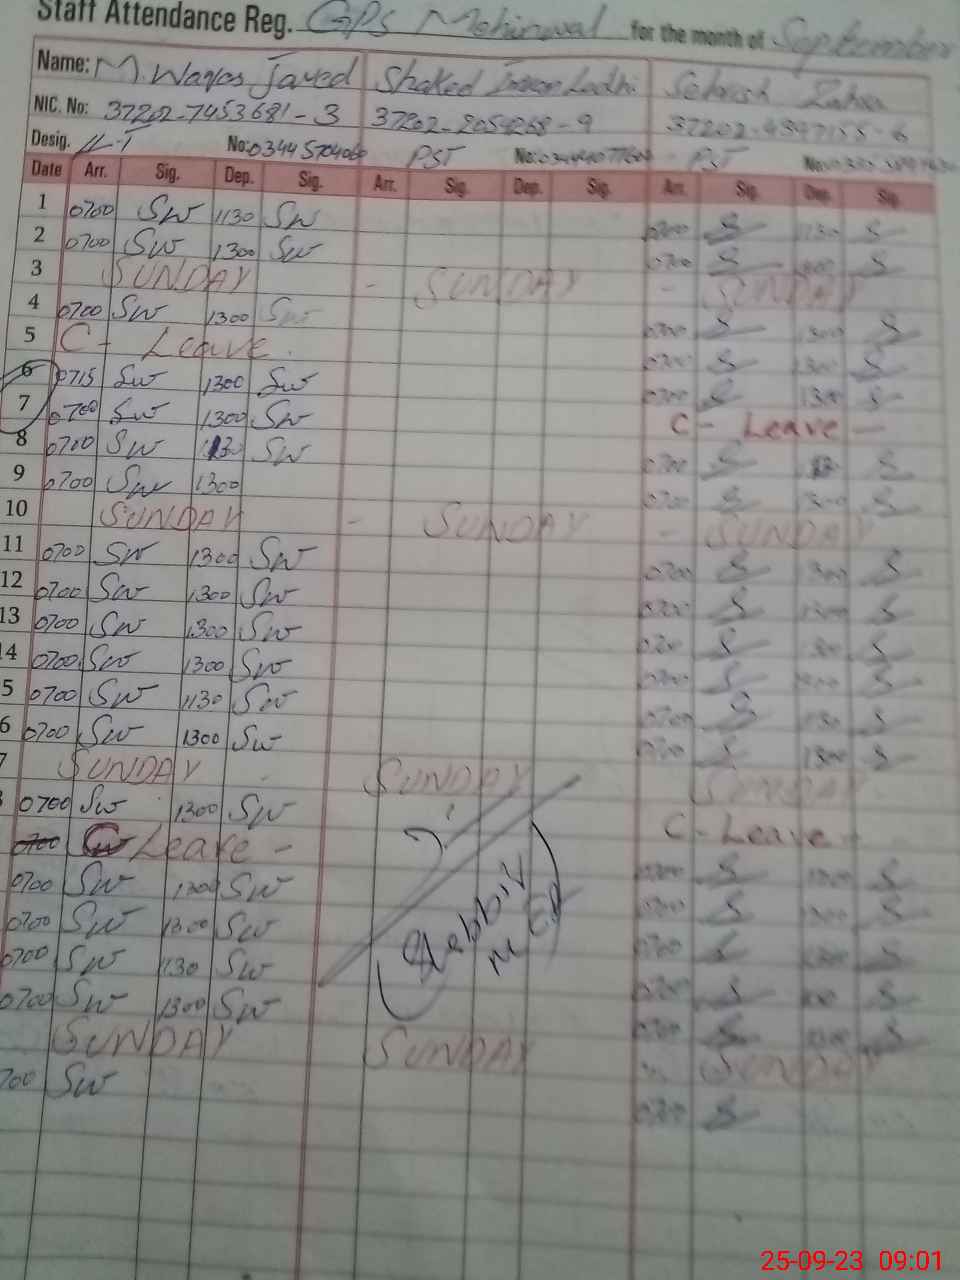 Staff Attendance Reg. GPS Mohinwal for the month of September
Name: M. Waqas Javed Shaked Imran Lodhi Sehrish
NIC. No: 37202-7453681-3 37202-2054268-9 37202-4347155-6
Desig. No: 03445704060 PST No: PST No:
Date Arr. Sig. Dep. Sig. Arr. Sig. Dep. Sig. Arr. Sig. Dep. Sig.
1 0700 SW 1130 SW 0700 S 1130 S
2 0700 SW 1300 SW 0700 S 1300 S
3 SUNDAY - SUNDAY - SUNDAY
4 0700 SW 1300 SW 0700 S 1300 S
5 C- Leave. 0700 S 1300 S
6 0715 SW 1300 SW 0700 S 1300 S
7 0700 SW 1300 SW C- Leave -
8 0700 SW 1130 SW 0700 S S
9 0700 SW 1300 0700 S 1300 S
10 SUNDAY - SUNDAY - SUNDAY
11 0700 SW 1300 SW 0700 S 1300 S
12 0700 SW 1300 SW 0700 S 1300 S
13 0700 SW 1300 SW 0700 S 1300 S
14 0700 SW 1300 SW 0700 S 1300 S
5 0700 SW 1130 SW 0700 S 1130 S
6 0700 SW 1300 SW 0700 S 1300 S
7 SUNDAY SUNDAY SUNDAY
0700 SW 1300 SW C- Leave -
0700 C- Leave - 0700 S 1300 S
0700 SW 1300 SW 0700 S 1300 S
0700 SW 1300 SW 0700 S 1300 S
0700 SW 1130 SW 0700 S S
0700 SW 1300 SW 0700 S 1300 S
SUNDAY SUNDAY SUNDAY
700 SW 0700 S
25-09-23 09:01